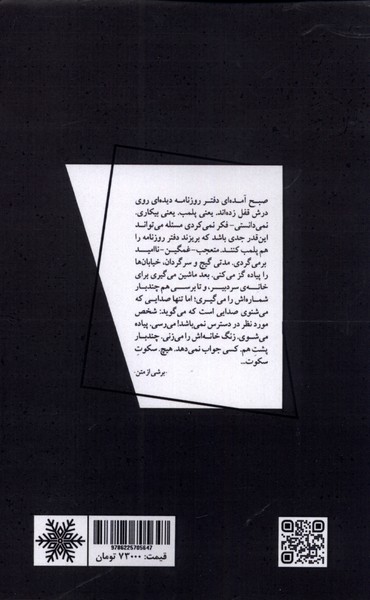 صبح آمده‌ای دفتر روزنامه دیده‌ای روی
درش قفل زده‌اند. یعنی پلمب. یعنی بیکاری.
نمی‌دانستی- فکر نمی‌کردی مسئله می‌تواند
این‌قدر جدی باشد که بریزند دفتر روزنامه را
هم پلمب کنند. متعجب- غمگین- ناامید
برمی‌گردی. مدتی گیج و سرگردان، خیابان‌ها
را پیاده گز می‌کنی. بعد ماشین می‌گیری برای
خانه‌ی سردبیر، و تا برسی هم چندبار
شماره‌اش را می‌گیری؛ اما تنها صدایی که
می‌شنوی صدایی است که می‌گوید: شخص
مورد نظر در دسترس نمی‌باشد! می‌رسی. پیاده
می‌شوی. زنگ خانه‌اش را می‌زنی. چندبار
پشتِ هم. کسی جواب نمی‌دهد. هیچ. سکوتِ
سکوت...
·برشی از متن·
9786225705647
قیمت: ۷۳۰۰۰ تومان